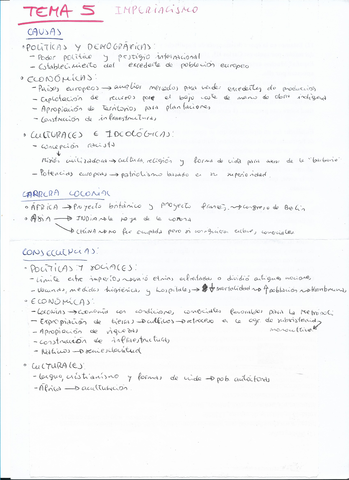 TEMA 5 IMPERIALISMO
CAUSAS
• POLÍTICAS Y DEMOGRÁFICAS:
- Poder político y prestigio internacional
- Establecimiento del excedente de población europeo
• ECONÓMICAS:
- Países europeos → amplios mercados para vender excedentes de producción
- Explotación de recursos por el bajo coste de mano de obra indígena
- Apropiación de territorios para plantaciones
- Construcción de infraestructuras
• CULTURALES E IDEOLÓGICAS:
- Concepción racista
Misión civilizadora → cultura, religión y forma de vida para sacar de la "barbarie"
- Potencias europeas → patriotismo basado en su superioridad.
CARRERA COLONIAL
• ÁFRICA → Proyecto británico y Proyecto francés → Congreso de Berlín
• ASIA → INDIA → la joya de la corona
→ CHINA → no fue ocupada pero sí comerciales
CONSECUENCIAS:
• POLÍTICAS Y SOCIALES:
- Límite entre imperios, etnias o dividió antiguas naciones
- Vacunas, medidas higiénicas y hospitales → mortalidad → ↑ población
• ECONÓMICAS:
- Colonias → economía con condiciones comerciales favorables para la metrópoli
- Expropiación de tierras → cultivos → retroceso en la agr. de subsistencia
monocultivo
- Apropiación de riquezas
- construcción de infraestructuras
- Nativos → semiesclavitud
• CULTURALES:
- Lengua, cristianismo y formas de vida → pob. autóctona
- África → aculturación